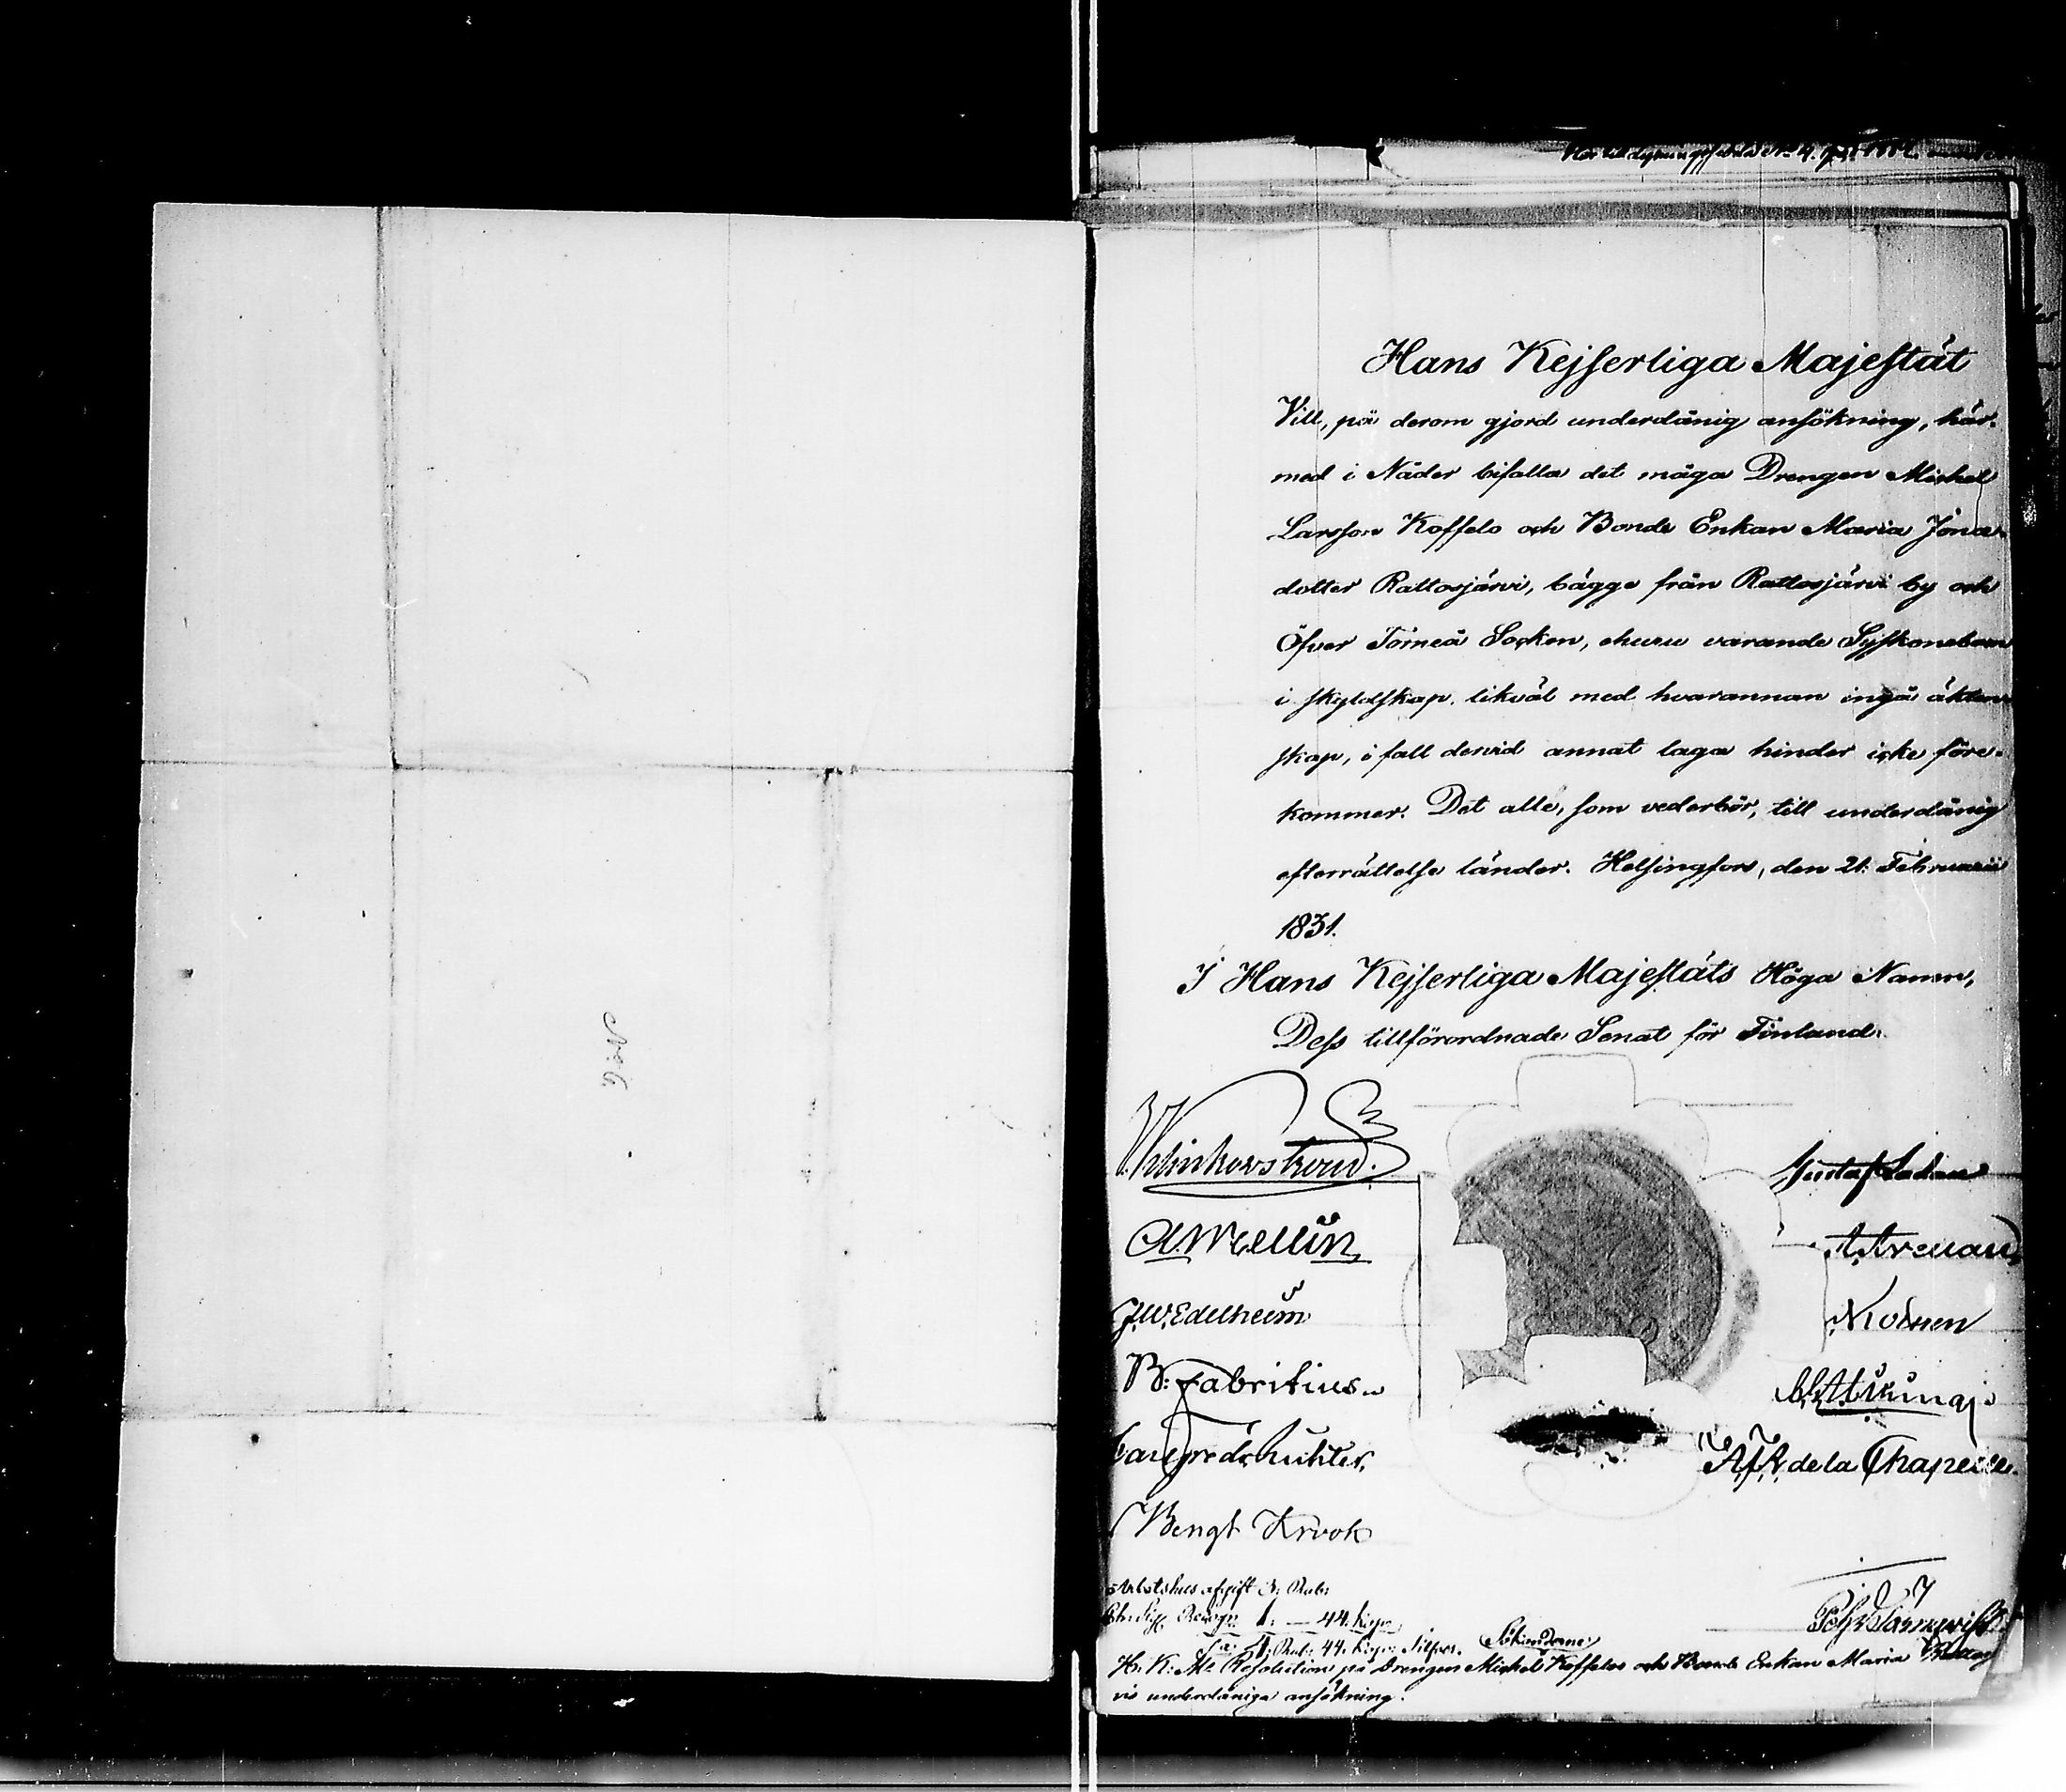 N:o 6.
Hans Kejserliga Majestät
Vill, på derom gjord underdånig ansökning, här-
med i Nåder bifalla det måga Drengen Michel
Larsson Koffelo och Bonde Enkan Maria Jöns
dotter Rattosjärvi, bägge från Rattosjärvi by och
Öfver Torneå Socken, ehuru varande Syskonebarn
i skyldskap, likväl med hvarannan ingå äkten
skap, i fall dervid annat laga hinder icke före-
kommer. Det alle, som vederbör, till underdånig
efterrättelse länder. Helsingfors, den 21. Februarii
1831.
I Hans Kejserliga Majestäts Höga Namn,
Dess tillförordnade Senat för Finland.
Klinkowström.
A. Mellin
J. W. Edelheim
B: Fabritius
Carl Fredr.
Bengt Krook
Gustaf
A. F. R. de la Chapelle
Arbetshus afgift 3: Rub:
1: — 44. Kop:
S:a 4: Rub: 44. Kop: Silfver.
Sökanderne
H: K: M:ts Resolution på Drengen Michel Koffelos och Bonde Enkan Maria
vis underdåniga ansökning.